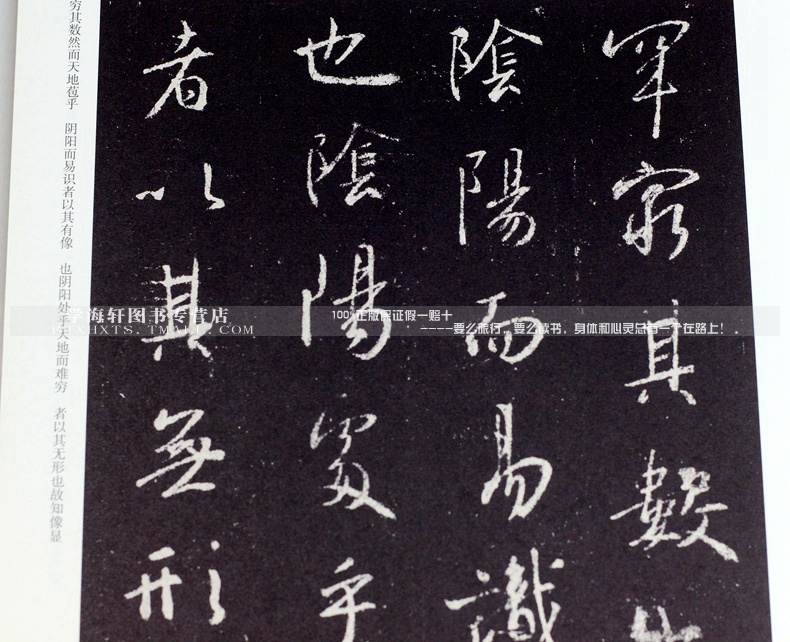 罕窮其數
陰陽而易識
也陰陽處乎
者以其無形
穷其数然而天地苞乎 阴阳而易识者以其有像 也阴阳处乎天地而难穷 者以其无形也故知像显
学海轩图书专营店
TMALL. COM
100%正版保证假一赔十
----要么旅行，要么读书，身体和心灵总有一个在路上！